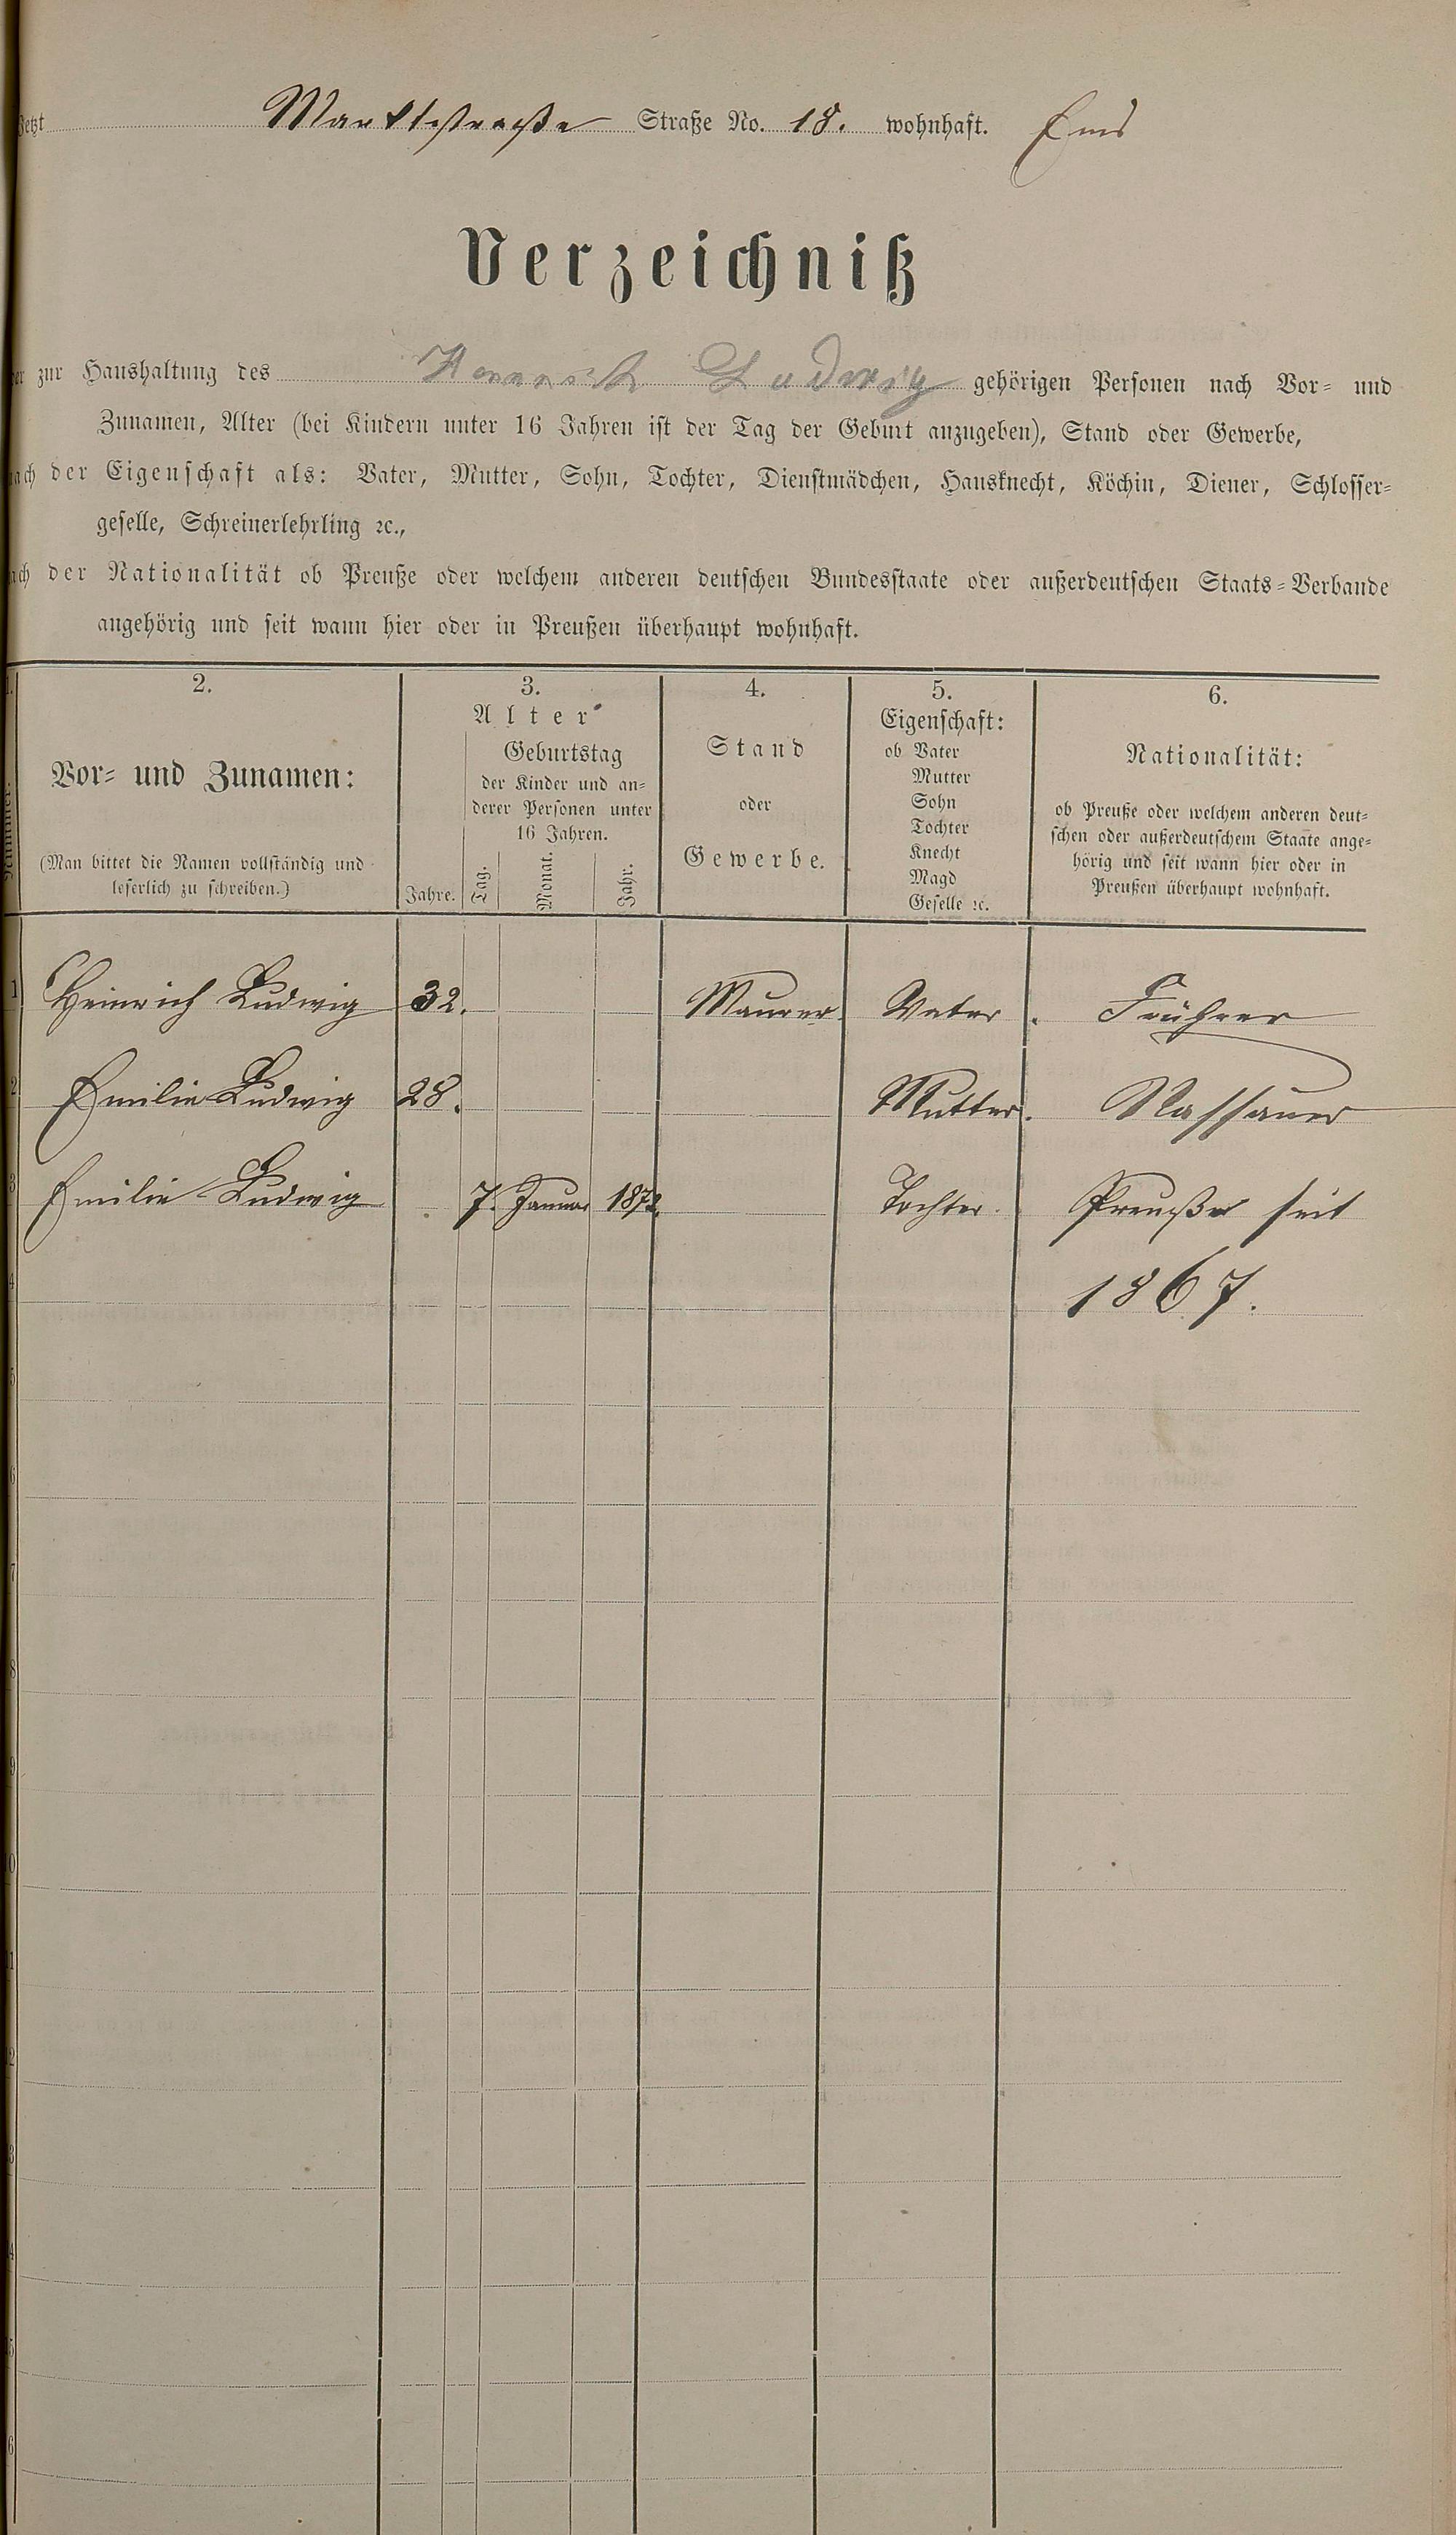 Jetzt Marktstraße Straße No. 18. wohnhaft. Ems
Verzeichniß
der zur Haushaltung des Heinrich Ludwig gehörigen Personen nach Vor- und
Zunamen, Alter (bei Kindern unter 16 Jahren ist der Tag der Geburt anzugeben), Stand oder Gewerbe,
nach der Eigenschaft als: Vater, Mutter, Sohn, Tochter, Dienstmädchen, Hausknecht, Köchin, Diener, Schlosser-
geselle, Schreinerlehrling ꝛc.,
nach der Nationalität ob Preuße oder welchem anderen deutschen Bundesstaate oder außerdeutschen Staats-Verbande
angehörig und seit wann hier oder in Preußen überhaupt wohnhaft.
1. 2. 3. 4. 5. 6.
Nummer.
Vor- und Zunamen:
(Man bittet die Namen vollständig und
leserlich zu schreiben.)
Alter
Geburtstag
der Kinder und an-
derer Personen unter
16 Jahren.
Jahre. Tag. Monat. Jahr.
Stand
oder
Gewerbe.
Eigenschaft:
ob Vater
Mutter
Sohn
Tochter
Knecht
Magd
Geselle ꝛc.
Nationalität:
ob Preuße oder welchem anderen deut-
schen oder außerdeutschem Staate ange-
hörig und seit wann hier oder in
Preußen überhaupt wohnhaft.
1 Heinrich Ludwig 32. Maurer. Vater. Frührer
2 Emilie Ludwig 28. Mutter. Nassauer
3 Emilie Ludwig 7. Januar 1872. Tochter. Preuße seit
4 1867.
5
6
7
8
9
10
11
12
13
14
15
16